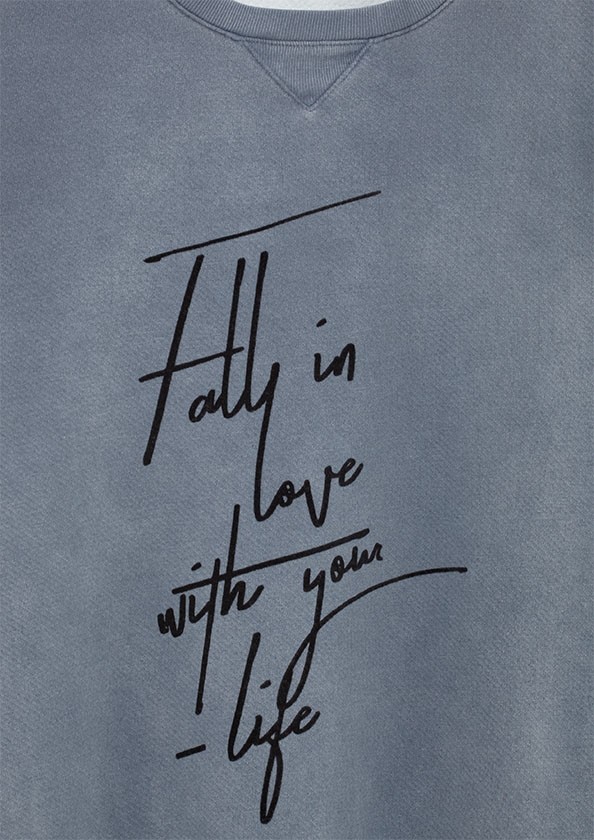 Fall in
love
with your
- life